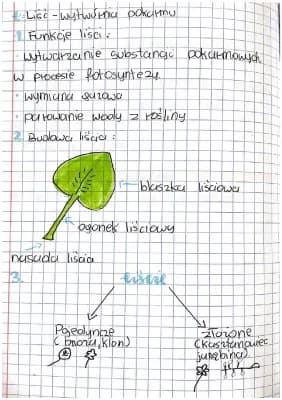 Liść - wytwórnia pokarmu
1. Funkcje liścia:
· wytwarzanie substancji pokarmowych
w procesie fotosyntezy
· wymiana gazowa
· parowanie wody z rośliny
2. Budowa liścia:
blaszka liściowa
ogonek liściowy
nasada liścia
3. liście
Pojedyncze
(brzoza, klon)
złożone
(kasztanowiec
jarzębina)